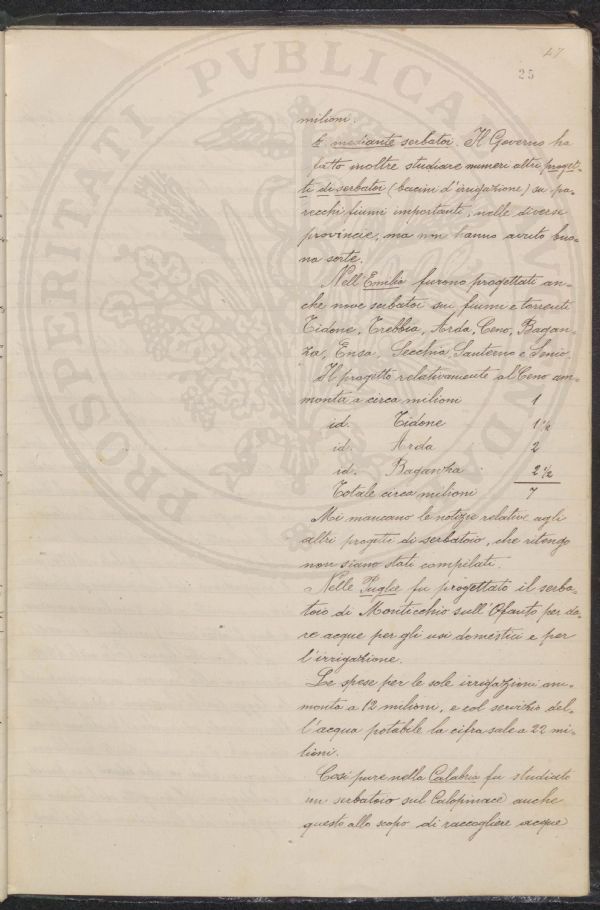 47
25
milioni.
2. mediante serbatoi. Il Governo ha
fatto inoltre studiare numeri altri proget-
ti di serbatoi (bacini d'irrigazione) su pa-
recchi fiumi importanti, nelle diverse
provincie, ma non hanno avuto buo-
na sorte.
Nell'Emilia furono progettati an-
che nove serbatoi sui fiumi e torrenti
Tidone, Trebbia, Arda, Ceno, Bagan-
za, Enza, Secchia, Santerno e Senio.
Il progetto relativamente al Ceno am-
monta a circa milioni 1
id. Tidone 1 1/2
id. Arda 2
id. Baganza 2 1/2
Totale circa milioni 7
Mi mancano le notizie relative agli
altri progetti di serbatoio, che ritengo
non siano stati compilati.
Nelle Puglie fu progettato il serba-
toio di Monticchio sull'Ofanto per da-
re acque per gli usi domestici e per
l'irrigazione.
Le spese per le sole irrigazioni am-
monta a 12 milioni, e col servizio del-
l'acqua potabile la cifra sale a 22 mi-
lioni.
Così pure nella Calabria fu studiato
un serbatoio sul Calopinace anche
questo allo scopo di raccogliere acque
PROSPERITATI PVBLICAE